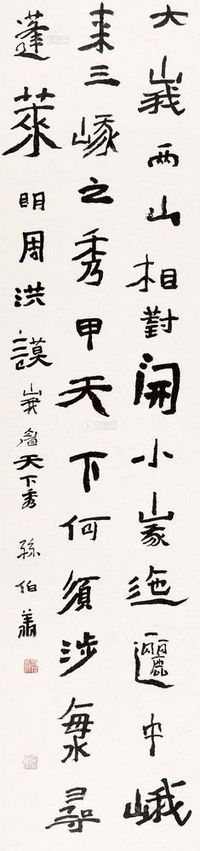 大峩兩山相對開小峩迤邐中峨
來三峨之秀甲天下何須涉海尋
蓬萊 明周洪謨 峩眉天下秀 孫伯翔